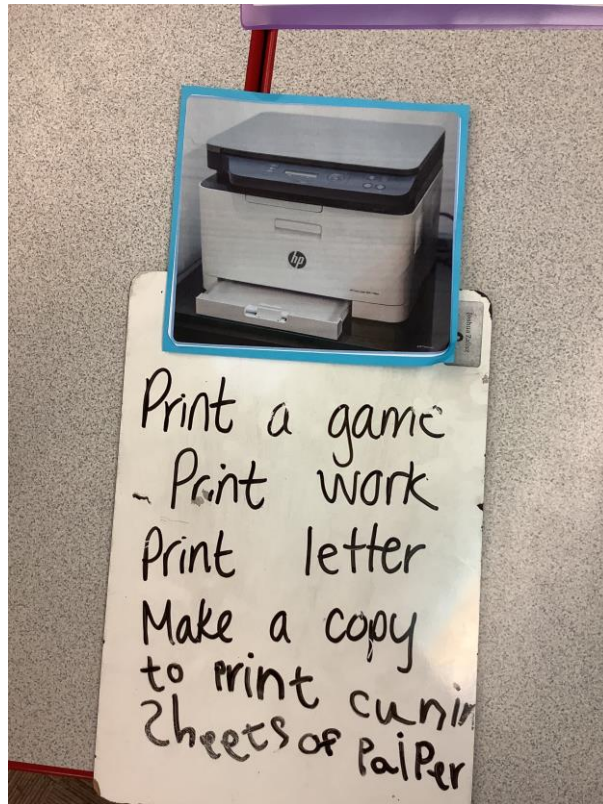 hp
Print a game
Print work
Print letter
Make a copy
to print cunin
Sheets of PaiPer